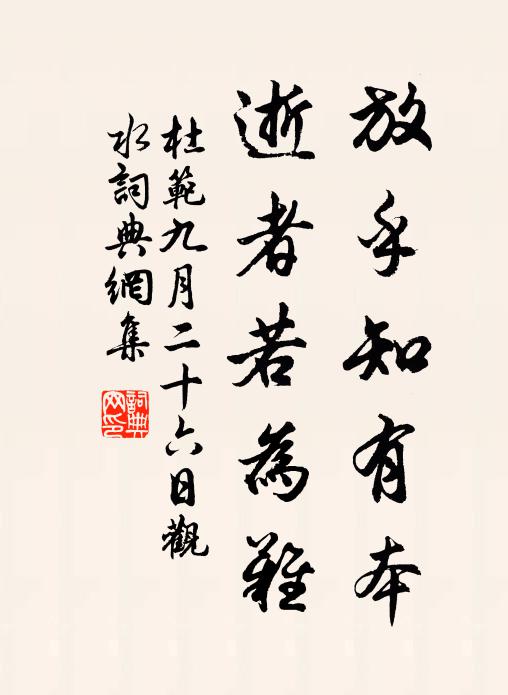 放乎知有本
逝者若為難
杜範九月二十六日觀
水詞典網集
詞典
网印